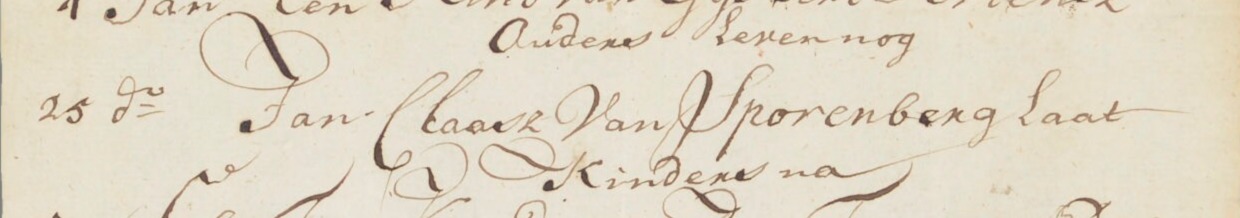 Ouders Leven nog
25 do Jan Claasz Van Sporenberg Laat
Kinders na